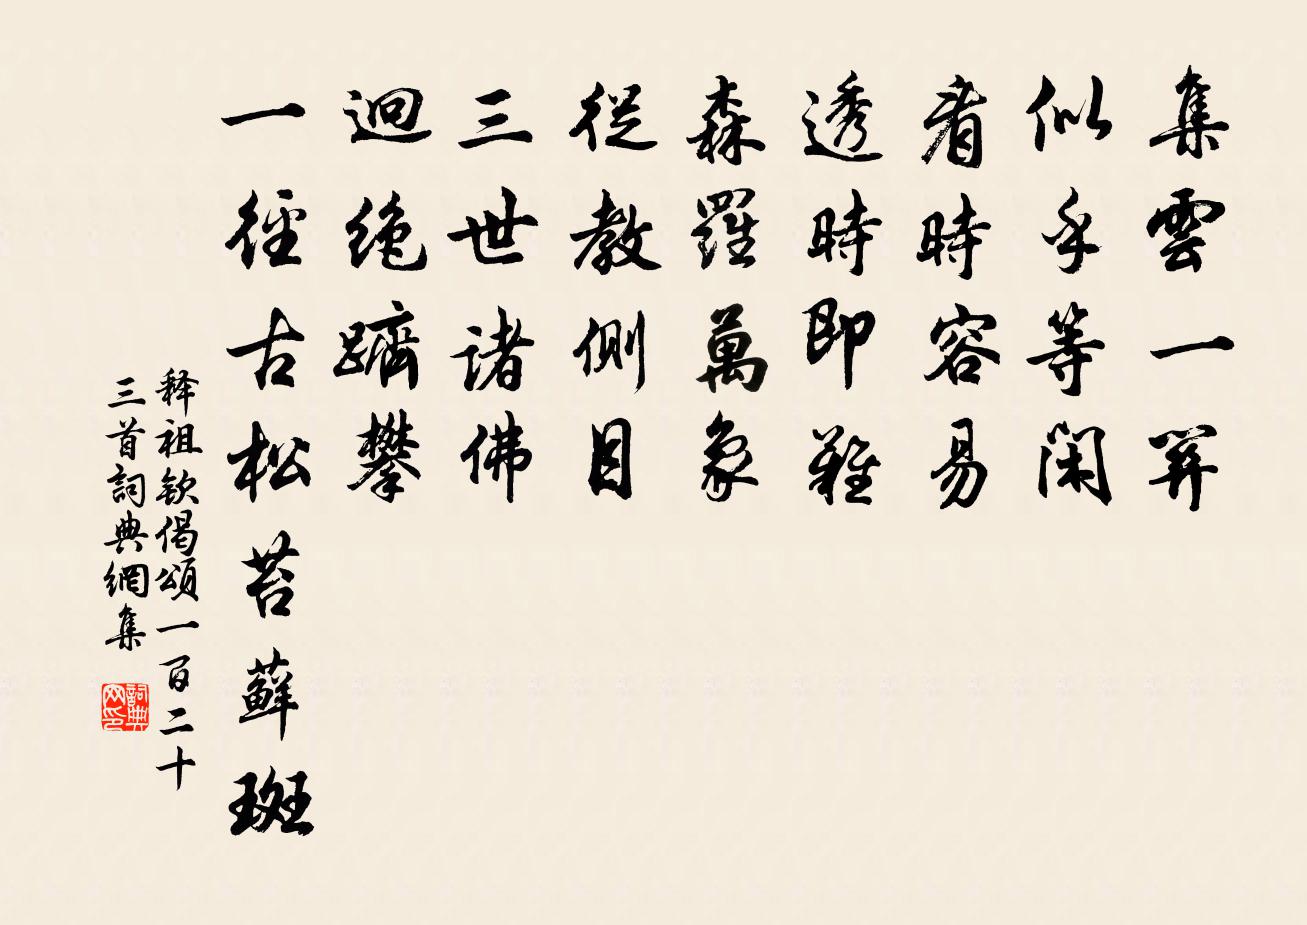 集雲一關
似乎等閑
看時容易
透時即難
森羅萬象
從教側目
三世諸佛
迥絶躋攀
一徑古松苔蘚斑
释祖欽偈頌一百二十
三首詞典網集
詞典
网印